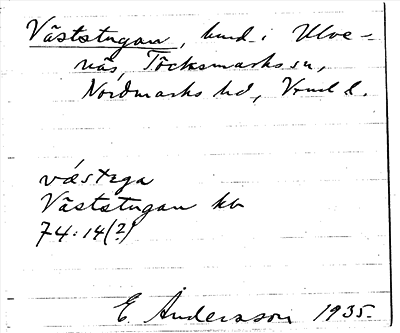 Väststugan, hmd. i Ulve-
näs, Töcksmarks sn,
Nordmarks hd, Vrml l.
västga
Väststugan kb
74:14(?)
E. Andersson 1935.